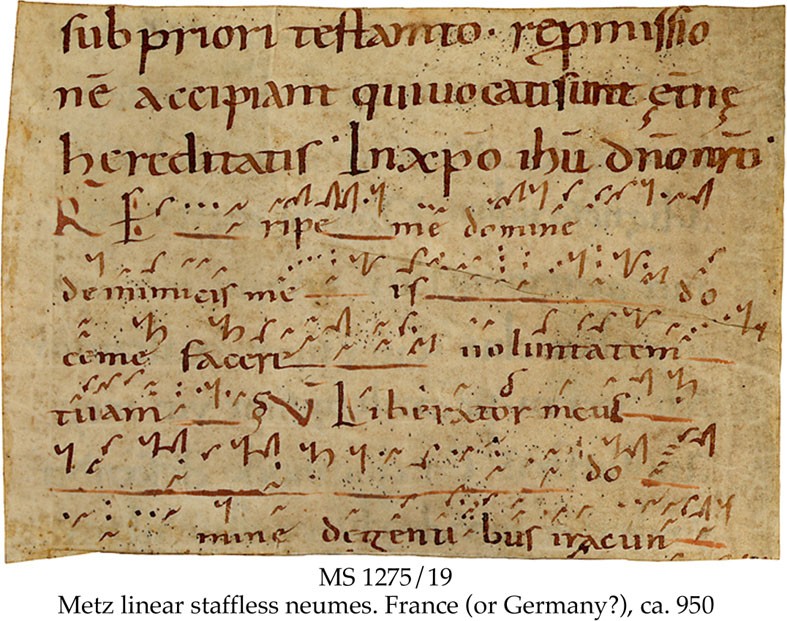 sub priori testam̄to· rep̱missio
nē accipiant qui uocati sunt ęt̄nę
hereditatis· In xp̄o ihū dn̄o nr̄o·
R E ripe me domine
de inimicis me is do
ce me facere uoluntatem
tuam V Liberator meus
do
mine de genti bus iracun
MS 1275/19
Metz linear staffless neumes. France (or Germany?), ca. 950